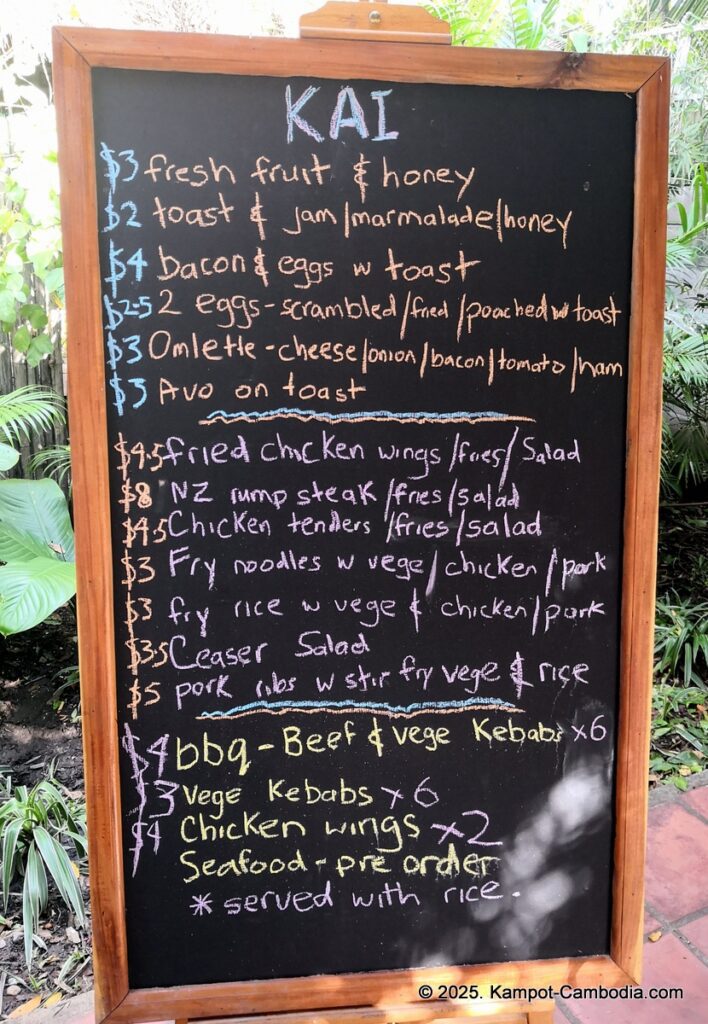 KAI
$3 fresh fruit & honey
$2 toast & jam/marmalade/honey
$4 bacon & eggs w toast
$2.5 2 eggs-scrambled/fried/poached w toast
$3 Omlette-cheese/onion/bacon/tomato/ham
$3 Avo on toast
$4.5 fried chicken wings/fries/Salad
$8 NZ rump steak/fries/salad
$4.5 Chicken tenders/fries/salad
$3 Fry noodles w vege/chicken/pork
$3 fry rice w vege & chicken/pork
$3.5 Ceaser Salad
$5 pork ribs w stir fry vege & rice
$4 bbq - Beef & vege Kebabs x6
$3 vege Kebabs x 6
$4 Chicken wings x2
Seafood - pre order
* served with rice.
© 2025. Kampot-Cambodia.com